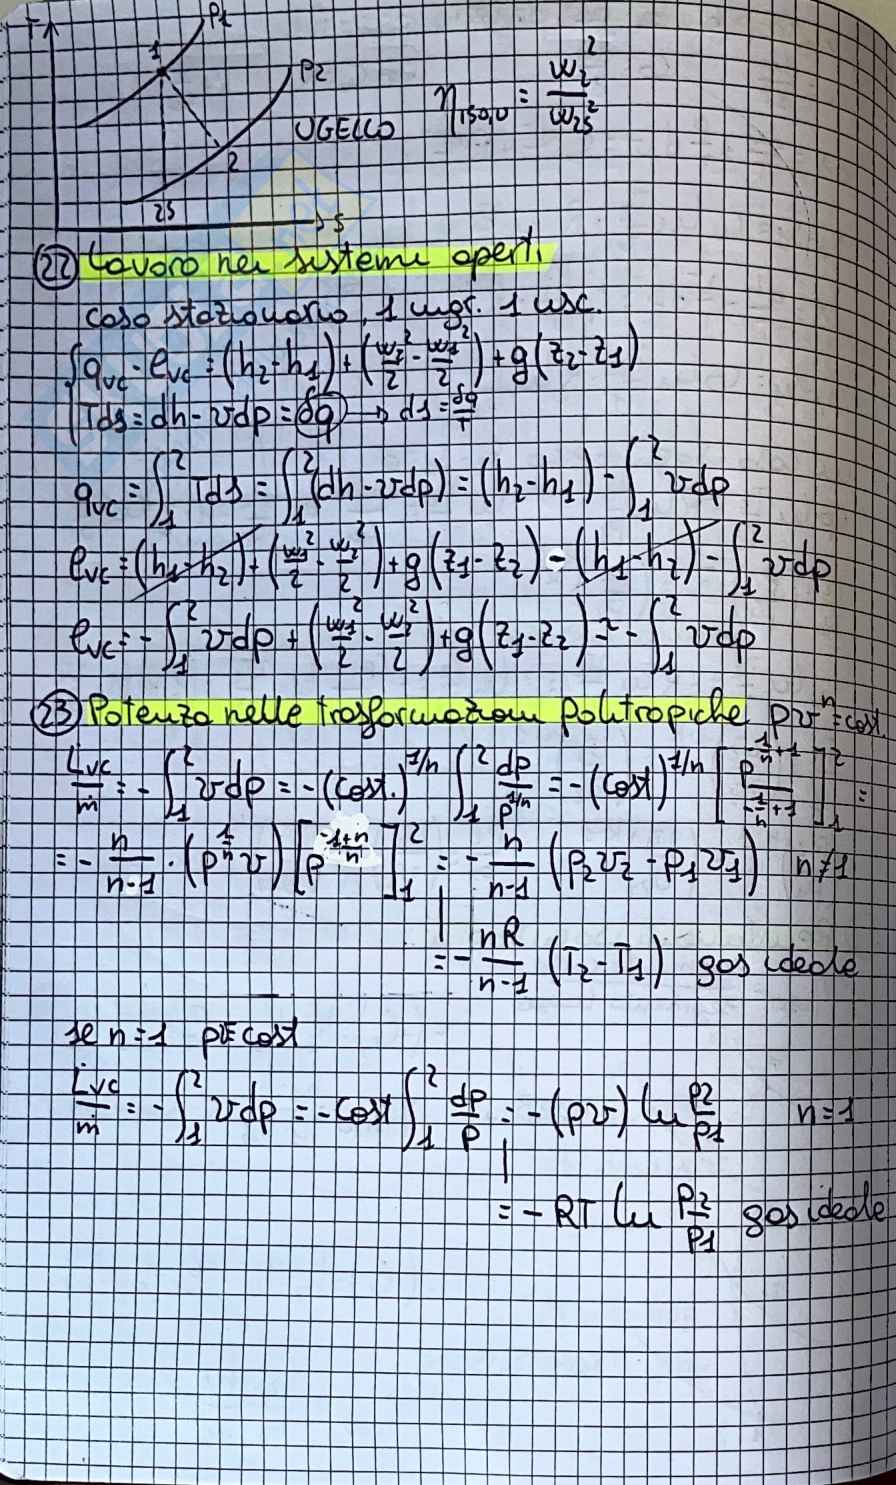 T
P1
1
P2
UGELLO
η iso,u = w2² / w2s²
2
2s
s
22 Lavoro nei sistemi aperti
caso stazionario, 1 ingr. 1 usc.
qvc - lvc = (h2-h1) + (w2²/2 - w1²/2) + g(z2-z1)
Tds = dh - vdp = δq → ds = δq/T
qvc = ∫₁² Tds = ∫₁² (dh - vdp) = (h2-h1) - ∫₁² vdp
lvc = (h1-h2) + (w1²/2 - w2²/2) + g(z1-z2) - (h1-h2) - ∫₁² vdp
lvc = - ∫₁² vdp + (w1²/2 - w2²/2) + g(z1-z2) = - ∫₁² vdp
23 Potenza nelle trasformazioni politropiche pvⁿ = cost.
L̇vc/ṁ = - ∫₁² vdp = -(cost.)^1/n ∫₁² dp/p^1/n = -(cost)^1/n [p^(-1/n+1) / (-1/n+1)]₁² =
= - n/(n-1) · (p^1/n v) [p^(-1+n)/n]₁² = - n/(n-1) (p2v2 - p1v1) n≠1
= - nR/(n-1) (T2-T1) gas ideale
se n=1 pv=cost
L̇vc/ṁ = - ∫₁² vdp = -cost ∫₁² dp/p = -(pv) ln p2/p1 n=1
= -RT ln p2/p1 gas ideale